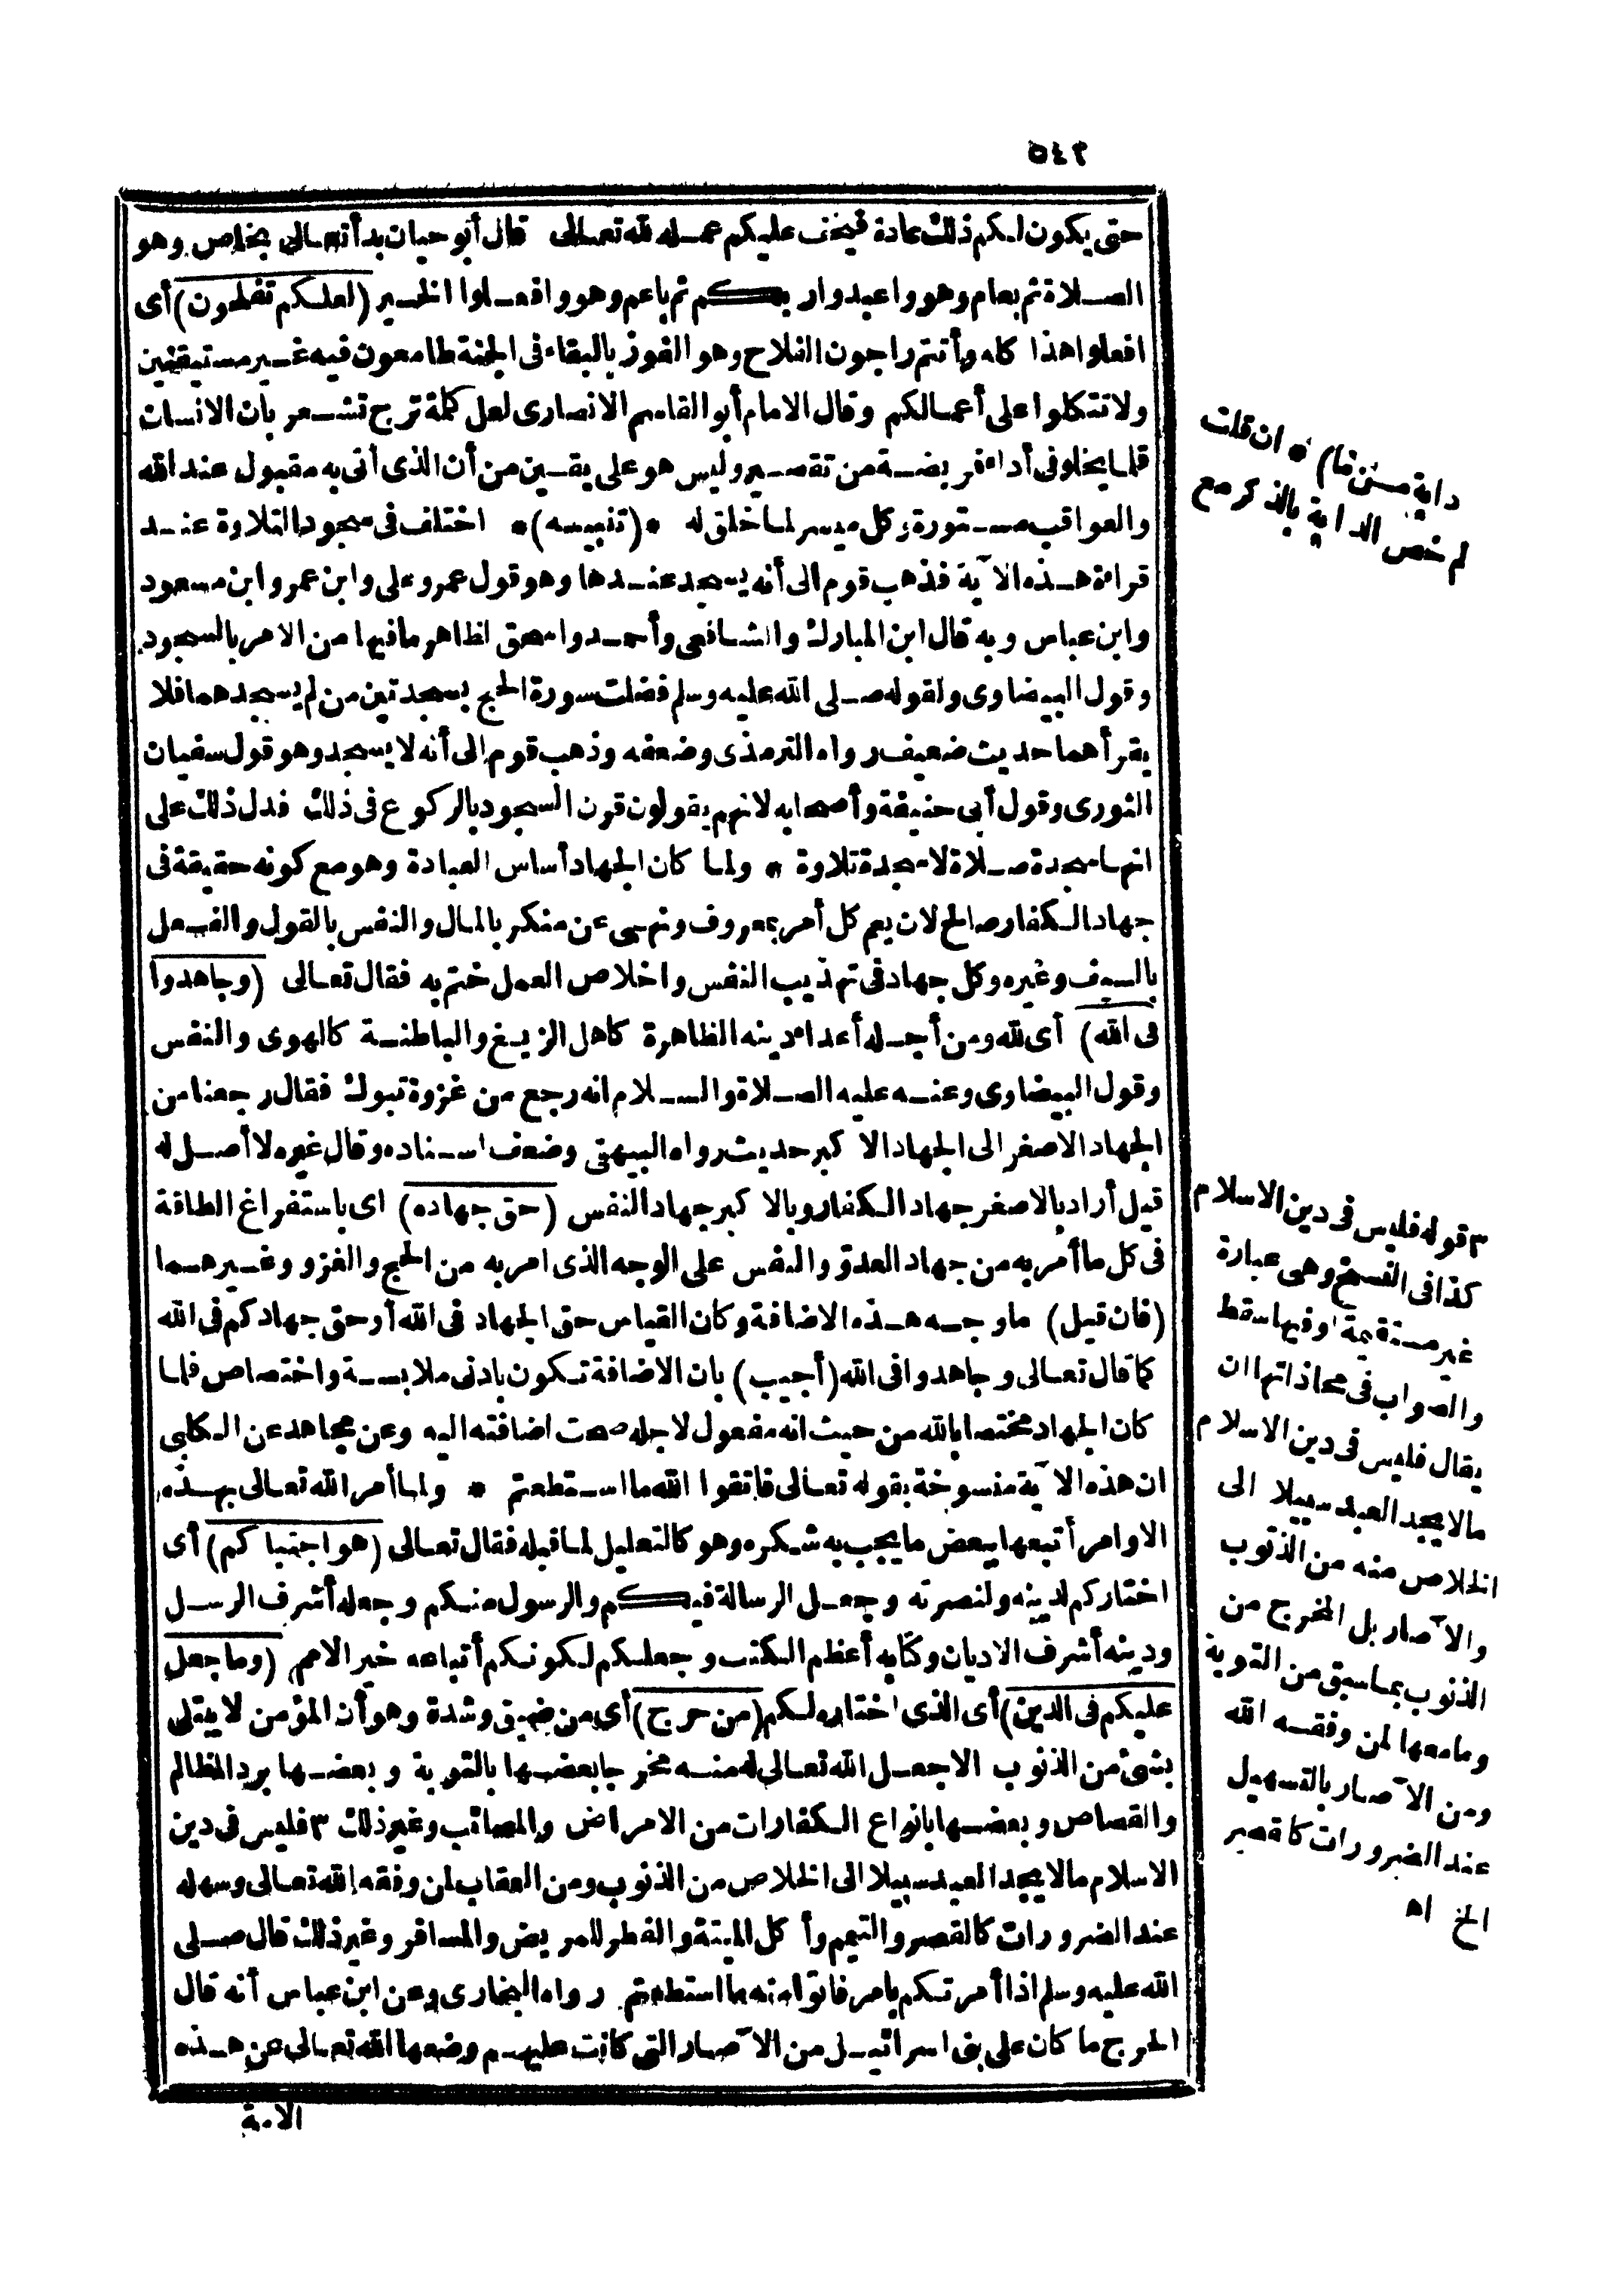 ٥٤٢
حتى يكون لكم ذلك عادة فيخف عليكم عمله لله تعالى قال أبو حيان بدأ تعالى بخاص وهو
الصلاة ثم بعام وهو واعبدوا ربكم ثم بأعم وهو وافعلوا الخير (لعلكم تفلحون) أى
افعلوا هذا كله وأنتم راجون الفلاح وهو الفوز بالبقاء فى الجنة طامعون فيه غير مستيقنين
ولا تتكلوا على أعمالكم وقال الامام أبو القاسم الانصارى لعل كلمة ترج تشعر بان الانسان
قلما يخلو فى أداء فريضة من تقصير وليس هو على يقين من أن الذى أتى به مقبول عند الله
والعواقب مستورة وكل ميسر لما خلق له * (تنبيه) * اختلف فى سجود التلاوة عند
قراءة هذه الآية فذهب قوم الى أنه يسجد عندها وهو قول عمر وعلى وابن عمر وابن مسعود
وابن عباس وبه قال ابن المبارك والشافعى وأحمد واسحق لظاهر ما فيها من الامر بالسجود
وقول البيضاوى ولقوله صلى الله عليه وسلم فضلت سورة الحج بسجدتين من لم يسجدهما فلا
يقرأهما حديث ضعيف رواه الترمذى وضعفه وذهب قوم الى أنه لا يسجد وهو قول سفيان
الثورى وقول أبى حنيفة وأصحابه لانهم يقولون قرن السجود بالركوع فى ذلك فدل ذلك على
انها سجدة صلاة لا سجدة تلاوة * ولما كان الجهاد أساس العبادة وهو مع كونه حقيقة فى
جهاد الكفار صالح لان يعم كل أمر بمعروف ونهى عن منكر بالمال والنفس بالقول والفعل
بالسيف وغيره وكل جهاد فى تهذيب النفس واخلاص العمل ختم به فقال تعالى (وجاهدوا
فى الله) أى لله ومن أجله أعداء دينه الظاهرة كاهل الزيغ والباطنة كالهوى والنفس
وقول البيضاوى وعنه عليه الصلاة والسلام انه رجع من غزوة تبوك فقال رجعنا من
الجهاد الاصغر الى الجهاد الاكبر حديث رواه البيهقى وضعف اسناده وقال غيره لا أصل له
قيل أراد بالاصغر جهاد الكفار وبالاكبر جهاد النفس (حق جهاده) اى باستفراغ الطاقة
فى كل ما أمر به من جهاد العدو والنفس على الوجه الذى امر به من الحج والغزو وغيرهما
(فان قيل) ما وجه هذه الاضافة وكان القياس حق الجهاد فى الله أو حق جهادكم فى الله
كما قال تعالى وجاهدوا فى الله (أجيب) بان الاضافة تكون بادنى ملابسة واختصاص فلما
كان الجهاد مختصا بالله من حيث انه مفعول لاجله صحت اضافته اليه وعن مجاهد عن الكلبى
ان هذه الآية منسوخة بقوله تعالى فاتقوا الله ما استطعتم * ولما أمر الله تعالى بهذه
الاوامر أتبعها ببعض ما يجب به شكره وهو كالتعليل لما قبله فقال تعالى (هو اجتباكم) أى
اختاركم لدينه ولنصرته وجعل الرسالة فيكم والرسول منكم وجعله أشرف الرسل
ودينه أشرف الاديان وكتابه أعظم الكتب وجعلكم لكونكم أتباعه خير الامم (وما جعل
عليكم فى الدين) أى الذى اختاره لكم (من حرج) أى من ضيق وشدة وهو أن المؤمن لا يبتلى
بشئ من الذنوب الا جعل الله تعالى له منه مخرجا بعضها بالتوبة وبعضها برد المظالم
والقصاص وبعضها بانواع الكفارات من الامراض والمصائب وغير ذلك ٣ فليس فى دين
الاسلام ما لا يجد العبد سبيلا الى الخلاص من الذنوب ومن العقاب لمن وفقه الله تعالى وسهله
عند الضرورات كالقصر والتيمم وأكل الميتة والفطر للمريض والمسافر وغير ذلك قال صلى
الله عليه وسلم اذا أمرتكم بامر فاتوا منه ما استطعتم رواه البخارى وعن ابن عباس أنه قال
الحرج ما كان على بنى اسرائيل من الآصار التى كانت عليهم وضعها الله تعالى عن هذه
الامة
دابة من ما) * ان قلت
لم خص الدابة بالذكر مع
٣ قوله فليس فى دين الاسلام
كذا فى النسخ وهى عبارة
غير مستقيمة أو فيها سقط
والصواب فى محاذاتها ان
يقال فليس فى دين الاسلام
ما لا يجد العبد سبيلا الى
الخلاص منه من الذنوب
والآصار بل المخرج من
الذنوب بما سبق من التوبة
وما معها لمن وفقه الله
ومن الآصار بالتسهيل
عند الضرورات كالقصر
الخ اه